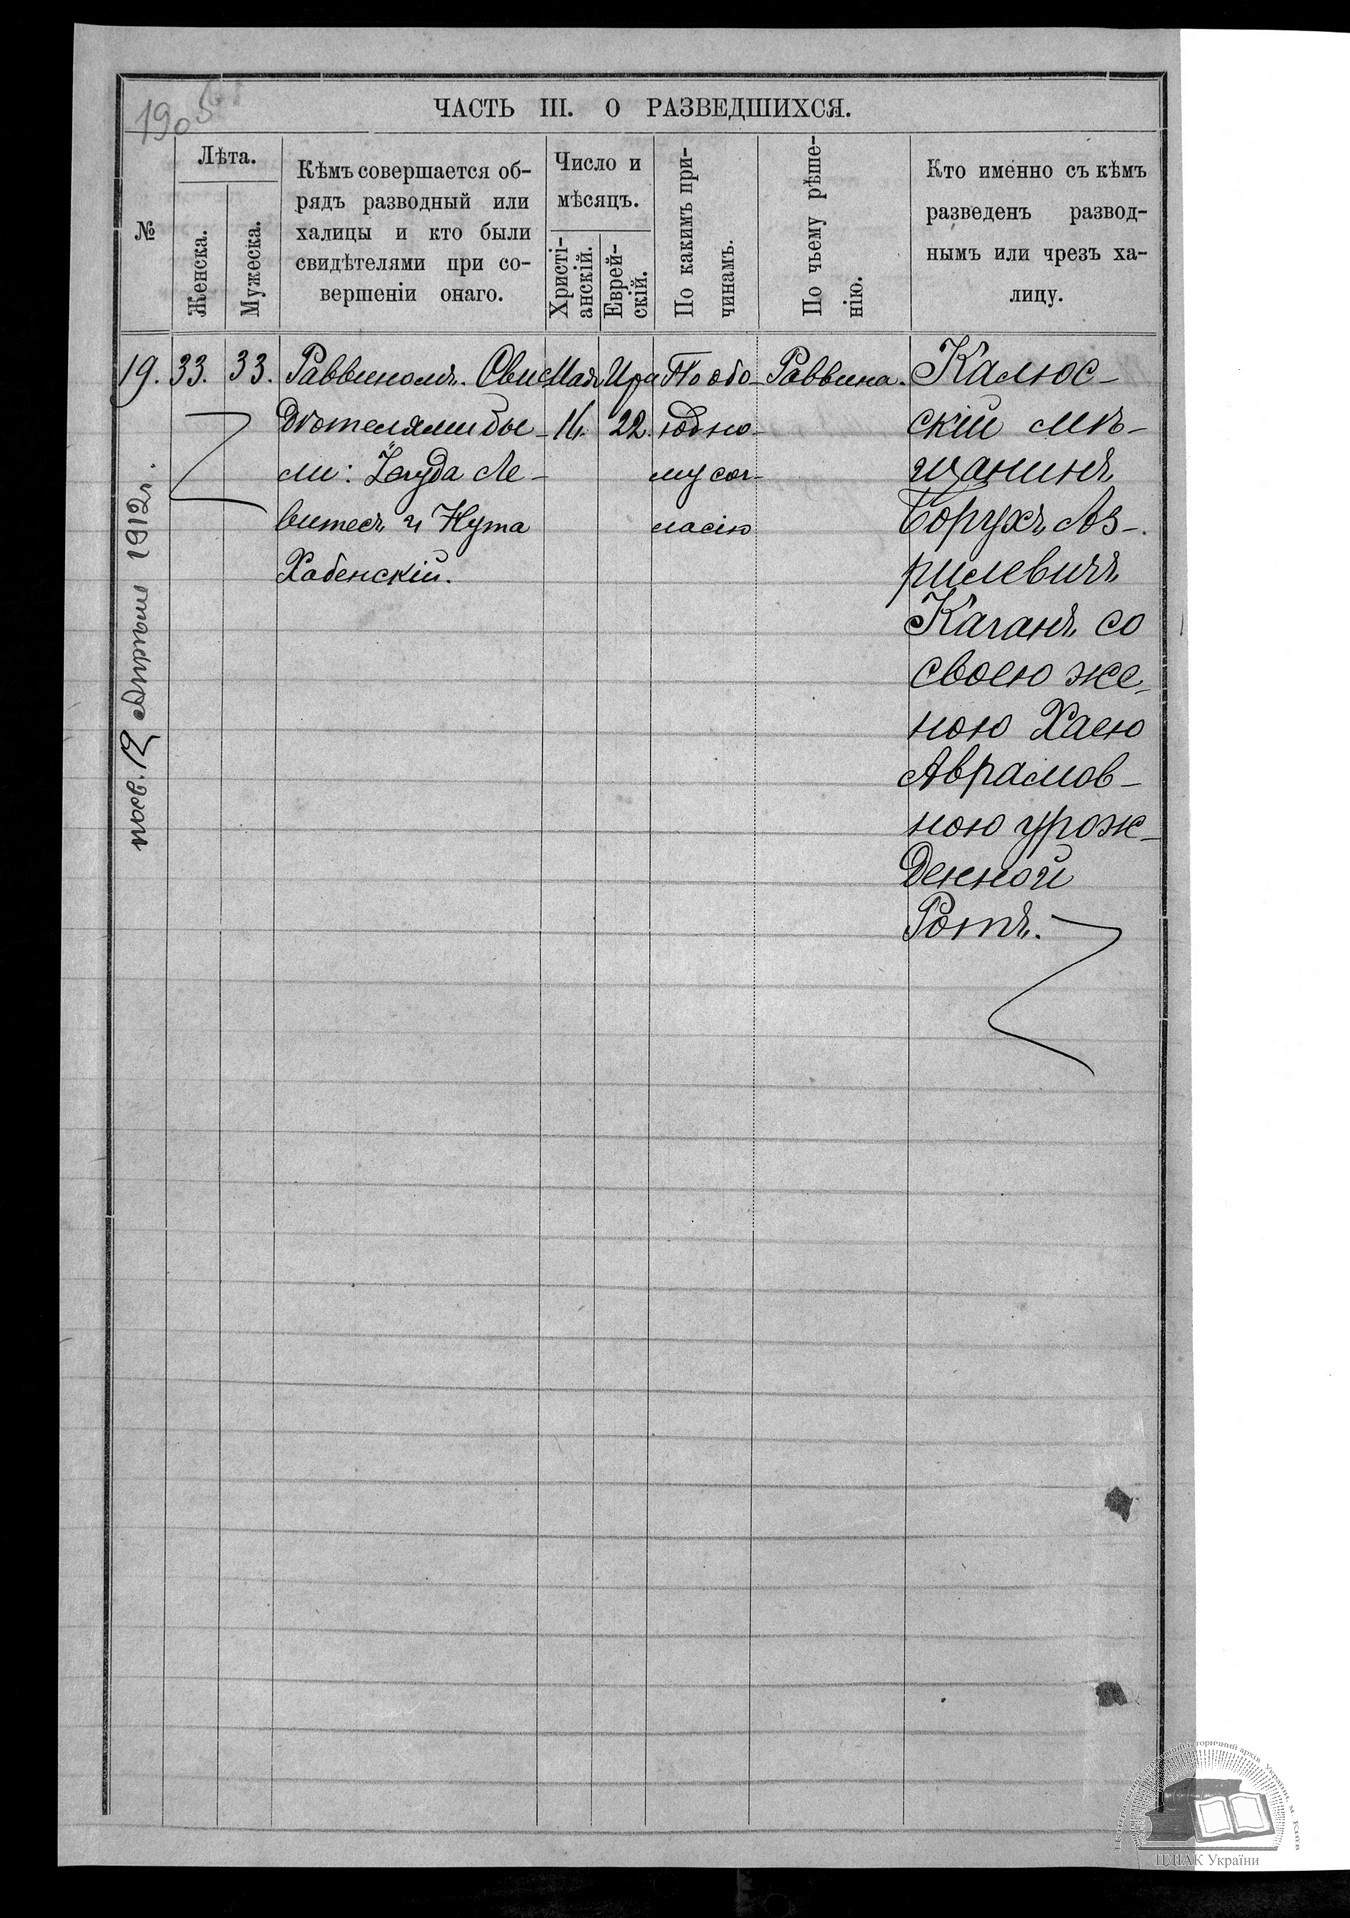 1905
ЧАСТЬ III. О РАЗВЕДШИХСЯ.
№
Лѣта.
Женска.
Мужеска.
Кѣмъ совершается об-
рядъ разводный или
халицы и кто были
свидѣтелями при со-
вершеніи онаго.
Число и
мѣсяцъ.
Христі-
анскій.
Еврей-
скій.
По какимъ при-
чинамъ.
По чьему рѣше-
нію.
Кто именно съ кѣмъ
разведенъ развод-
нымъ или чрезъ ха-
лицу.
19.
33.
33.
Раввиномъ. Сви-
дѣтелями бы-
ли: Іегуда Ле-
витесъ и Нута
Хабенскій.
Мая
14.
Ира
22.
По обо-
юдно-
му сог-
ласію
Раввина.
Калюс-
скій мѣ-
щанинъ
Борухъ Аз-
рилевичъ
Каганъ со
своею же-
ною Хаею
Аврамов-
ною урож-
денной
Ротъ.
12 Апрѣля 1912 г.
ЦДІАК України